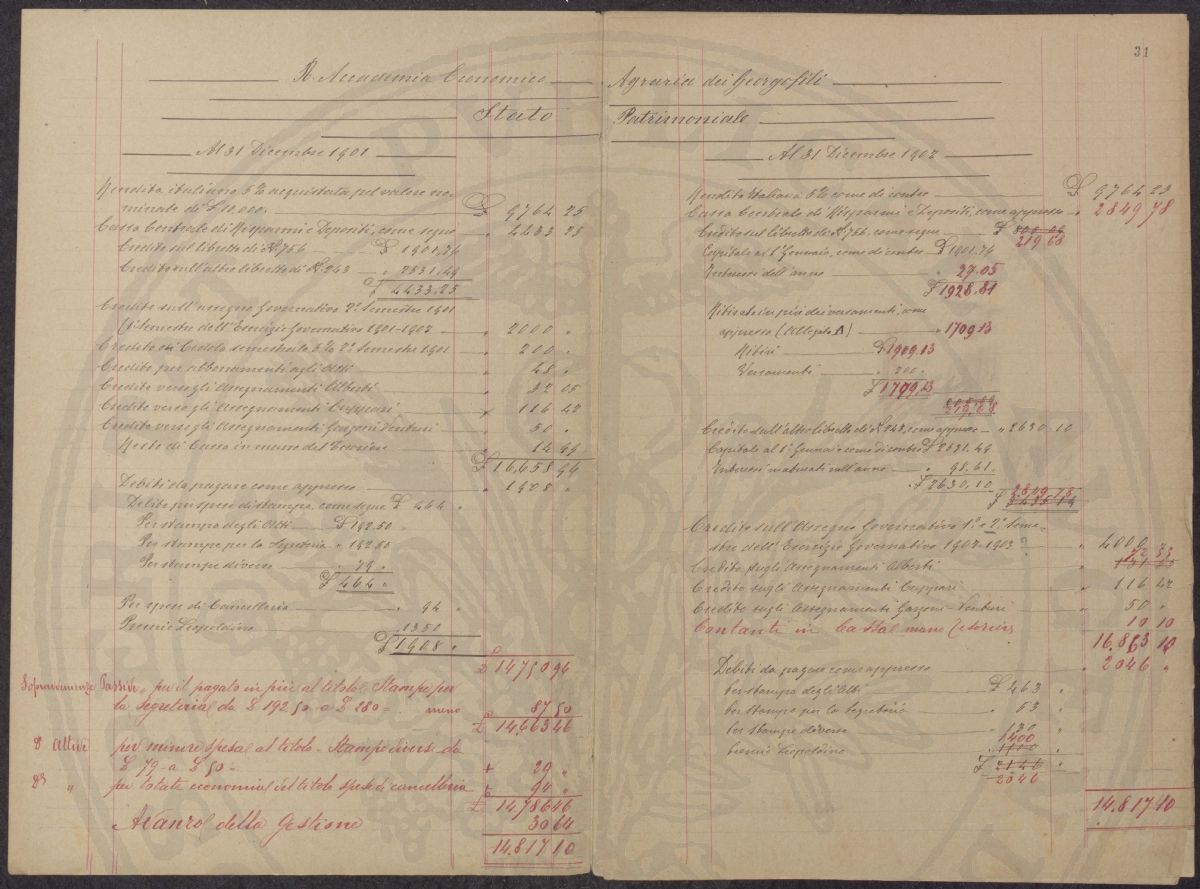 31
R. Accademia Economico Agraria dei Georgofili
Stato Patrimoniale
Al 31 Dicembre 1901
Rendita italiana 5% acquistata pel valore no-
minale di £ 10.000. £ 9764 25
Cassa Centrale di Risparmi e Depositi, come segue " 4433 25
Credito sul libretto di N. 766 £ 1901,76
Credito sull'altro libretto di N. 243 " 2531,49
£ 4433.25
Credito sull'assegno Governativo 2° Semestre 1901
(1° Semestre dell'Esercizio Governativo 1901-1902 " 2000 "
Credito di Cedola semestrale 5% 2° Semestre 1901 " 200 "
Credito per abbonamenti agli Atti " 48 "
Credito verso gli Assegnamenti Alberti " 32 05
Credito verso gli Assegnamenti Cuppari " 116 42
Credito verso gli Assegnamenti Gazzeri Venturi " 50 "
Resto di Cassa in mano del Tesoriere " 14 99
£ 16.658 96
Debiti da pagare come appresso " 1908 "
Debito per spese di stampe, come segue £ 464 "
Per stampa degli Atti £ 192.50
Per stampe per la Segreteria " 192.50
Per stampe diverse " 79 "
£ 464 "
Per spese di Cancelleria " 94 "
Premio Leopoldino 1350
£ 1908 "
£ 14750 96
Sopravvenienze Passive, per il pagato in più al titolo Stampe per
la Segreteria da £ 192 50 a £ 280 = meno 87 50
£ 14.663 46
d° Attive per minore spesa al titolo - Stampe diverse da
£ 79 a £ 50 " + 29 "
d° " per totale economia del titolo spese di cancelleria + 94 "
£ 14.786 46
Avanzo della Gestione 30 64
14.817 10
Al 31 Dicembre 1902
Rendita Italiana 5% come di contro £ 9764 25
Cassa Centrale di Risparmi e Depositi, come appresso " 2849 78
Credito sul libretto di N. 766, come segue £
219 68
Capitale al 1° Gennaio, come di contro £ 1901.76
Interessi dell'anno " 27.05
£ 1928.81
Ritirate in più dei versamenti, come
appresso (Allegato A) " 1709 13
Ritiri £ 1909.13
Versamenti " 200 "
£ 1709.13
219.68
Credito sull'altro libretto di N. 243, come appresso " 2630.10
Capitale al 1° Gennaio come di contro £ 2531.49
Interessi maturati nell'anno " 98.61
£ 2630,10
2849.78
£
Credito sull'Assegno Governativo 1° e 2° Seme-
stre dell'Esercizio Governativo 1902-1903 " 4000
Credito sugli Assegnamenti Alberti 72 33
Credito sugli Assegnamenti Cuppari " 116 42
Credito sugli Assegnamenti Gazzeri-Venturi " 50 "
Contanti in Cassa mano Tesoriere 10 10
16.863 10
Debiti da pagare come appresso " 2046 "
Per stampa degli Atti £ 463 "
Per stampe per la Segreteria " 63 "
Per stampe diverse " 120 "
1400
Premio Leopoldino
£ 2146 "
2046
14.817 10